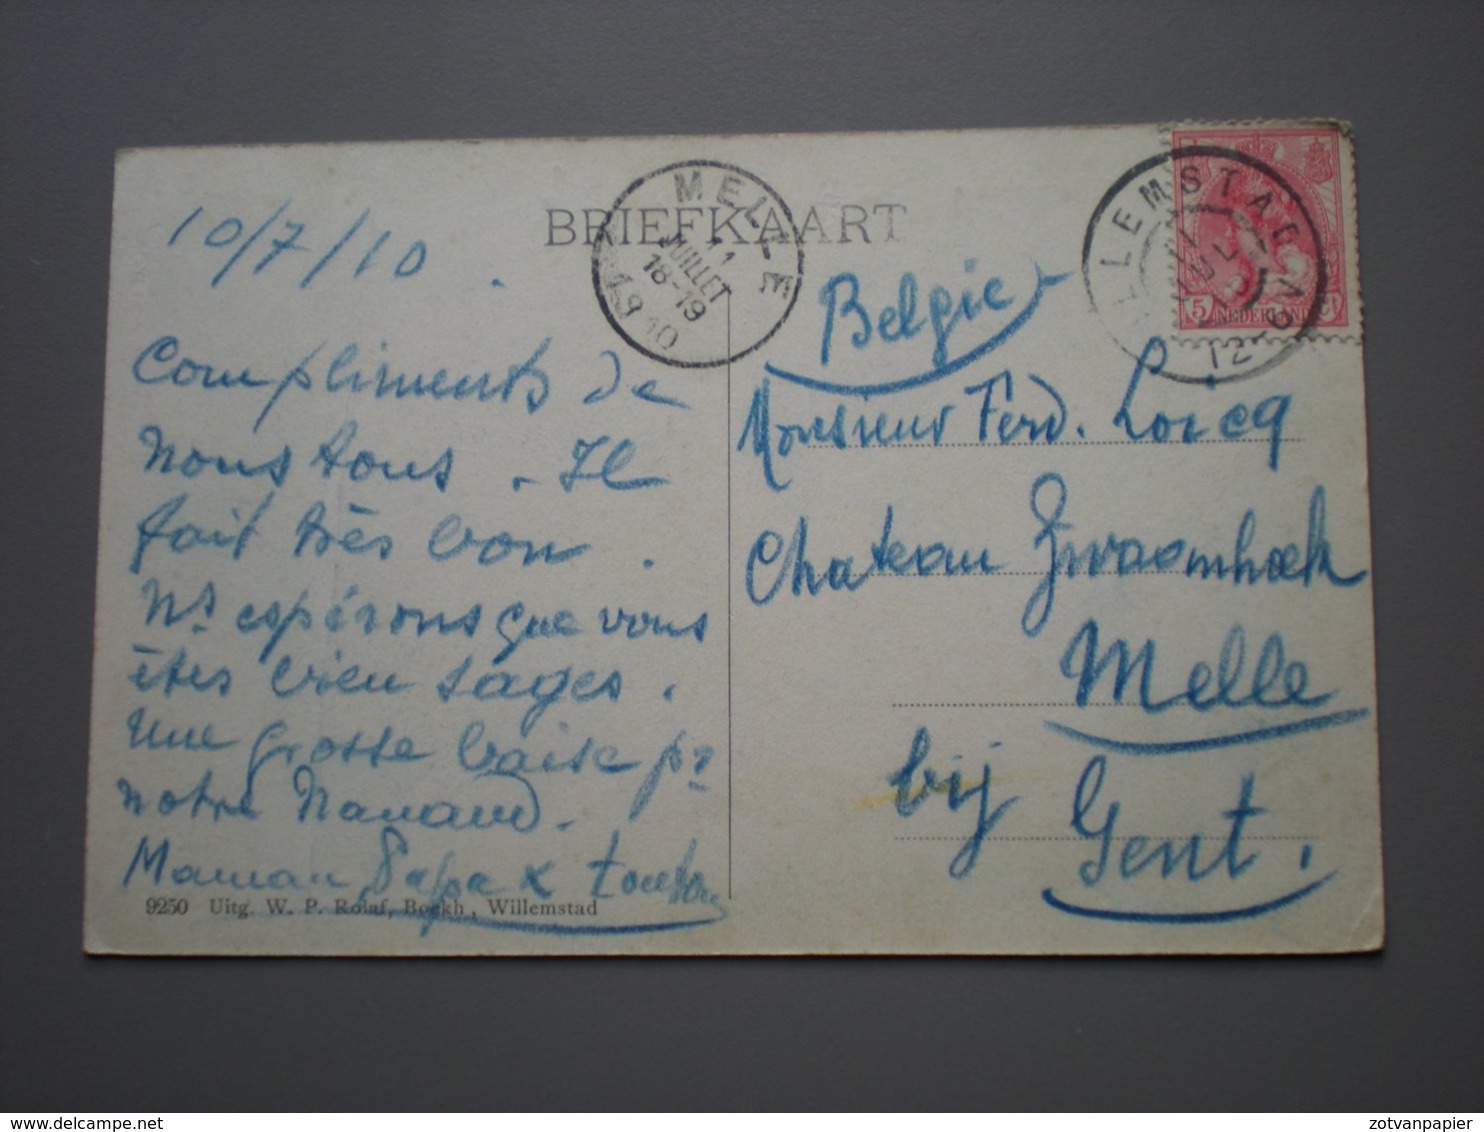 10/7/10.
Compliments de
nous tous. Il
fait très bon.
Ns. espérons que vous
êtes bien sages.
Une grosse baise pr
notre Nanaud.
Maman Papa &
9250 Uitg. W. P. Rolaf, Boekh, Willemstad
BRIEFKAART
MELLE
11
JUILLET
18-19
1910
LLEMSTAD
12
5 NEDERLAND
Belgie
Monsieur Ferd. Loicq
Chateau Zwaamhoek
Melle
bij
Gent.
zotvanpapier